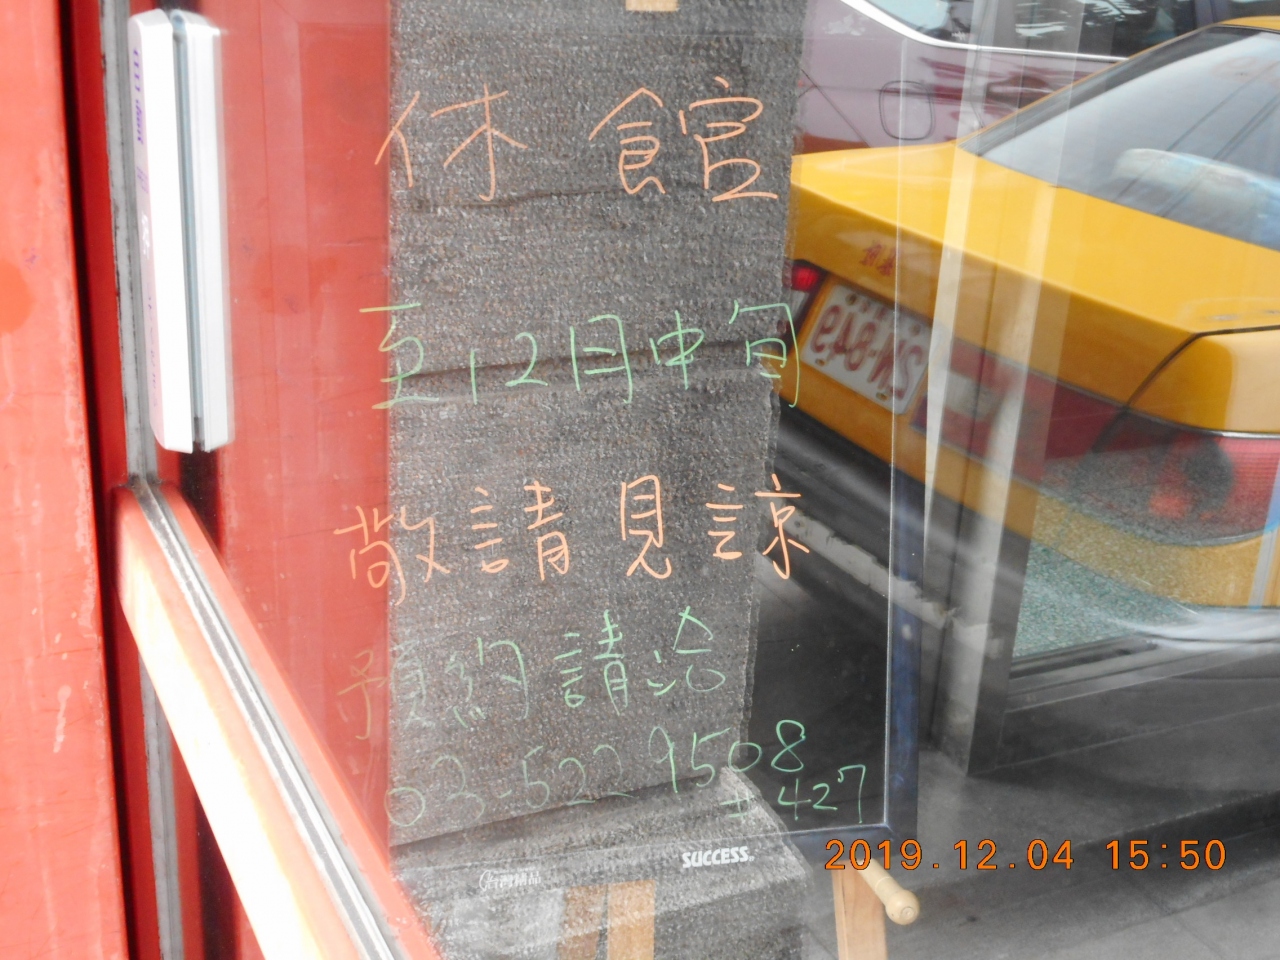 休館
至12月中旬
敬請見諒
預約請洽
03-5229508
#427
SUCCESS
2019.12.04 15:50